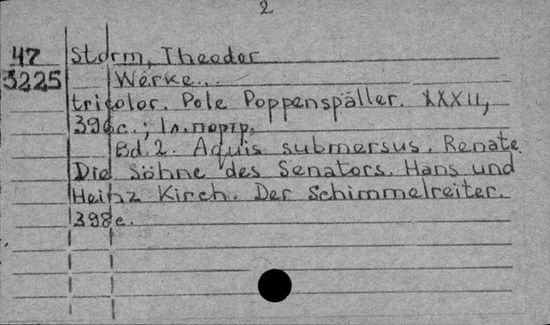 2
47 Storm, Theodor
3225 Werke...
tricolor. Pole Poppenspäller. XXXII,
396с.; 1л.портр.
Bd. 2. Aquis submersus. Renate.
Die Söhne des Senators. Hans und
Heinz Kirch. Der Schimmelreiter.
398с.